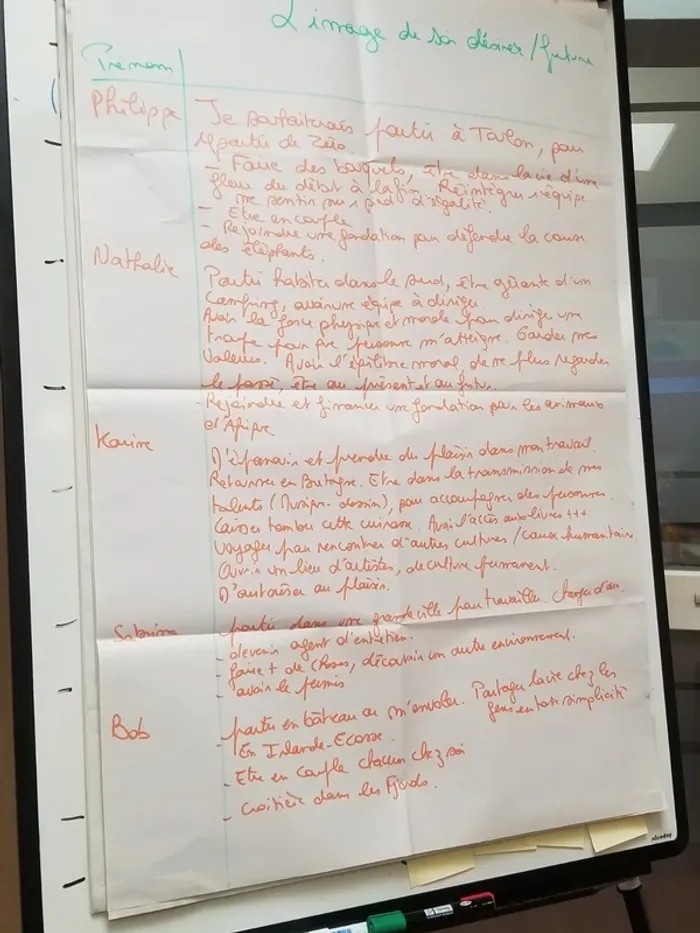 L'image de soi désirée/future
Prénom
Philippe
Je souhaiterais partir à Toulon, pour
repartir de Zéro.
- Faire des bouquets, être dans la vie d'une
fleur du début à la fin. Réintégrer l'équipe
me sentir sur 1 pied d'égalité.
- Etre en couple
- Rejoindre une fondation pour défendre la cause
des éléphants.
Nathalie
Partir habiter dans le sud, être gérante d'un
Camping, avoir une équipe à diriger.
Avoir la force physique et morale pour diriger une
troupe pour que personne m'atteigne. Garder mes
Valeurs. Avoir l'équilibre moral, de ne plus regarder
le passé, être au présent et au futur.
- Rejoindre et financer une fondation pour les animaux
d'Afrique
Karine
M'épanouir et prendre du plaisir dans mon travail.
Retourner en Bretagne. Etre dans la transmission de mes
talents (Musique - dessin), pour accompagner des personnes.
Laisser tomber cette cuirasse. Avoir l'accès aux livres +++
Voyager pour rencontrer d'autres cultures / cause humanitaire
Ouvrir un lieu d'artistes, de culture permanent.
M'autoriser au plaisir.
Sabrina
- partir dans une grande ville pour travailler. Changer d'air.
- devenir agent d'entretien.
- faire + de choses, découvrir un autre environnement.
- avoir le permis
Bob
- partir en bâteau ou m'envoler. Partager la vie chez les
gens en toute simplicité
En Islande - Ecosse.
- Etre en couple chacun chez soi
- Croisière dans les Fjords.